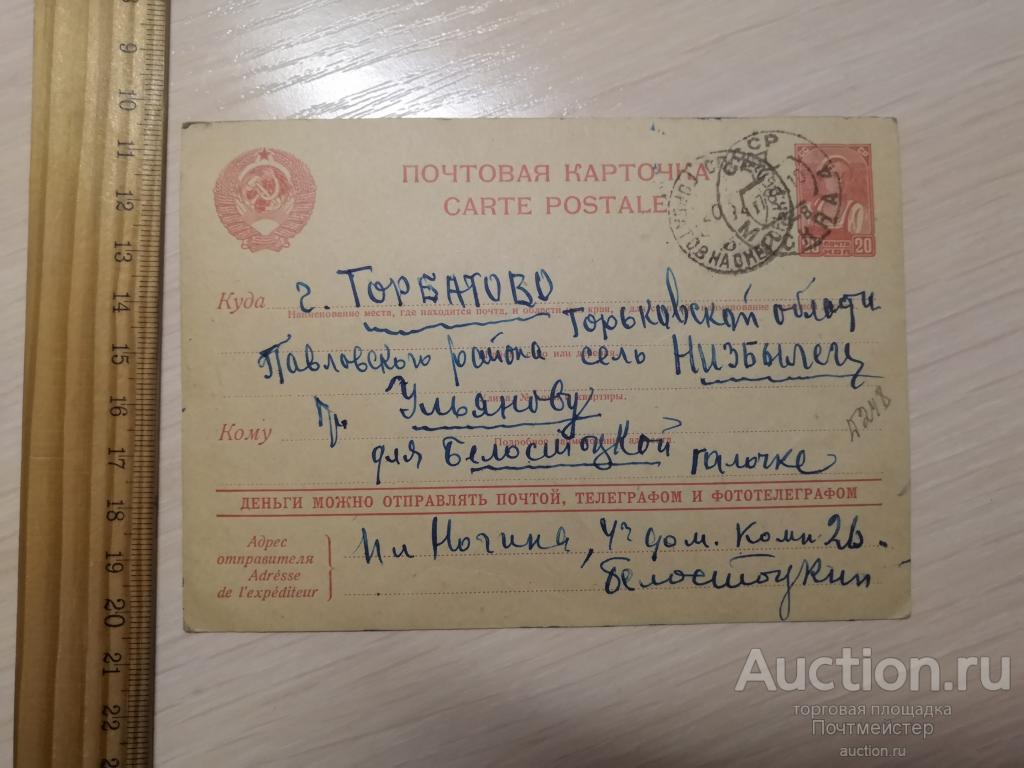 9
10
11
12
13
14
15
16
17
18
19
20
21
22
ПОЧТОВАЯ КАРТОЧКА
CARTE POSTALE
ПОЧТА
20 20
Куда г. ТОРБАТОВО
Наименование места, где находится почта, и области
Горьковской области
Павловского района село НИЗБЫЛЕЦ
Гр. Ульянову
Кому
для Белостоцкой галочке
А248
ДЕНЬГИ МОЖНО ОТПРАВЛЯТЬ ПОЧТОЙ, ТЕЛЕГРАФОМ И ФОТОТЕЛЕГРАФОМ
Адрес отправителя
Adrésse de l'expéditeur
Пл Ногина, 4й дом. Комн 26.
Белостоцкий
Auction.ru
торговая площадка
Почтмейстер
auction.ru